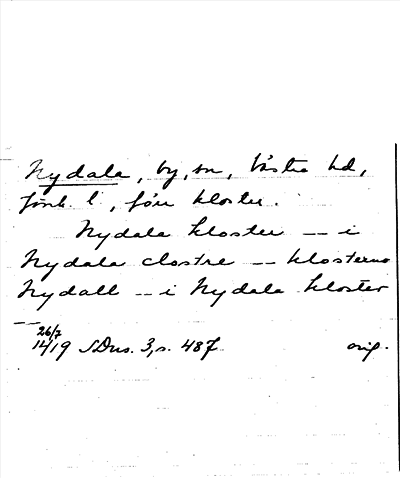 Nydala, by, sn, Västra hd,
Jönk. l., förr kloster.
Nydala kloster -- i
Nydala clostre -- klosterno
Nydall -- i Nydala kloster
--
26/7
1419 SDns. 3, s. 487 orig.